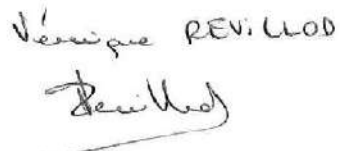 Véronique REVILLOD
Revillod